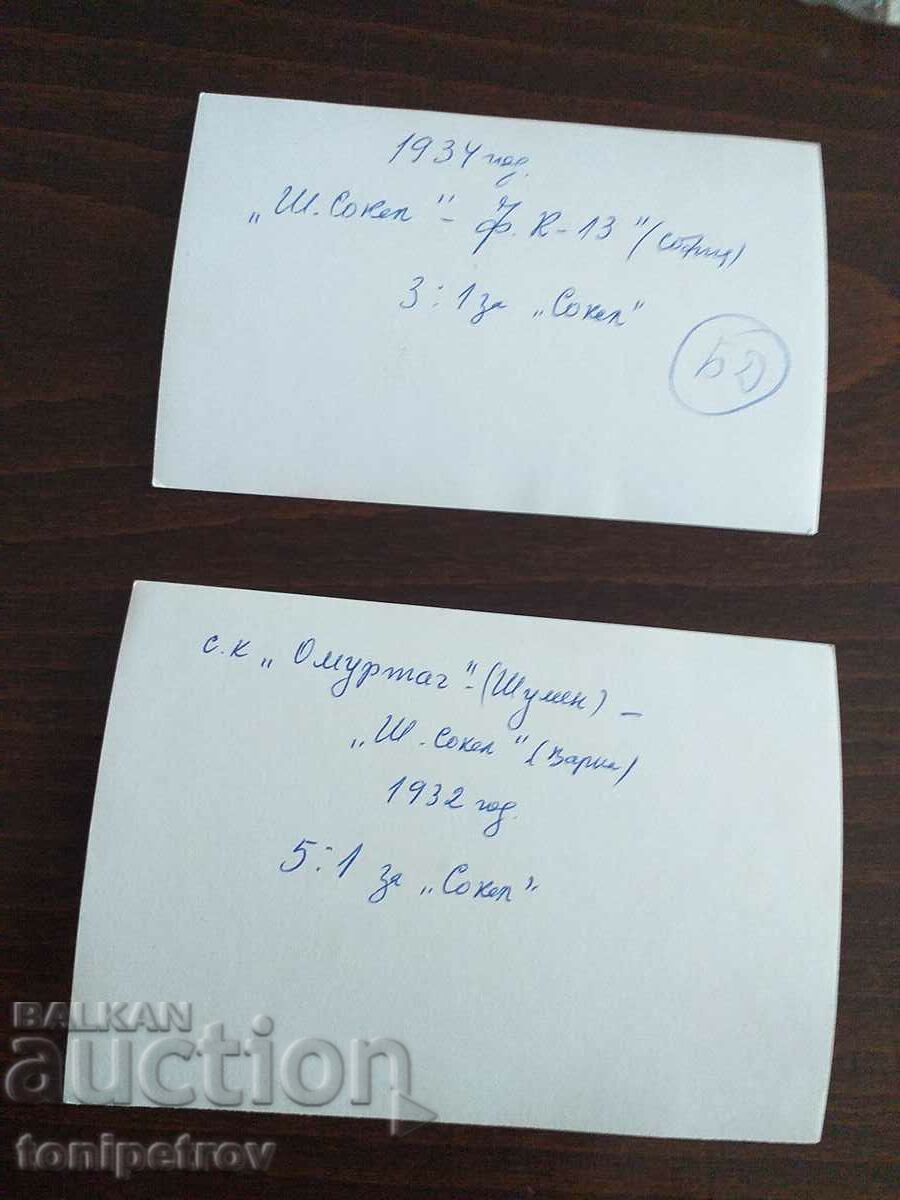 1934 год.
„Ш. Сокол" - „Ф.К-13" (София)
3:1 за „Сокол"
50
с.к „Омуртаг" - (Шумен) -
„Ш. Сокол" (Варна)
1932 год.
5:1 за „Сокол"
BALKAN
auction
tonipetrov